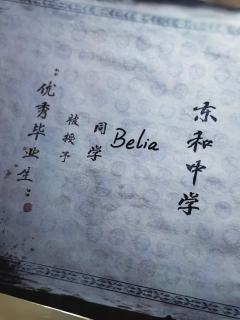 东和中学
Belia
同学
被授予
优秀毕业生